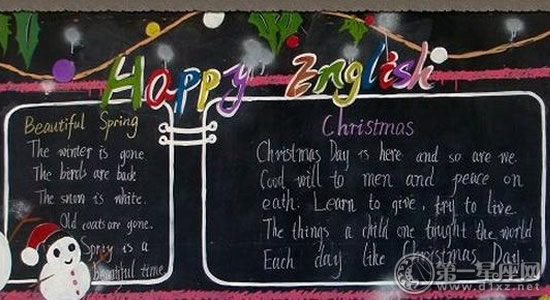 Happy English
Beautiful Spring
The winter is gone.
The birds are back
The snow is white.
Old coats are gone.
Spring is a
beautiful time
Christmas
Christmas Day is here and so are we.
Good will to men and peace on
eath. Learn to give, try to live
The things a child one taught the world
Each day like Christmas Day
第一星座网
www.d1xz.net